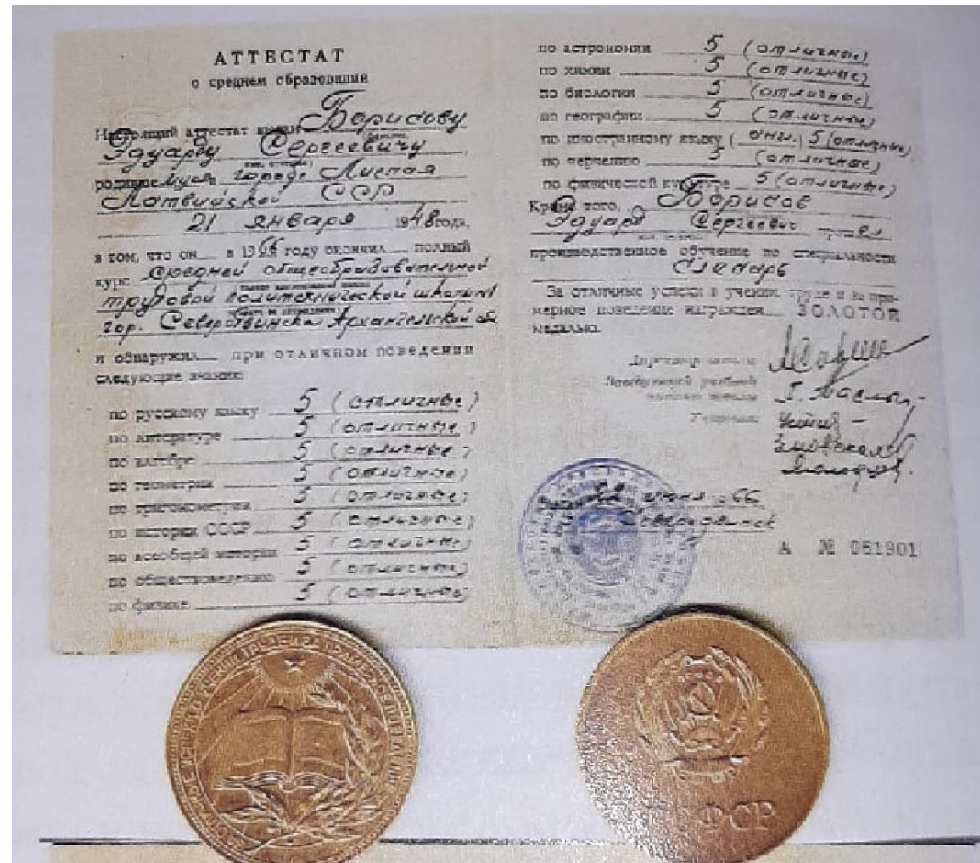 АТТЕСТАТ
о среднем образовании
Настоящий аттестат выдан Борисову
Эдуарду Сергеевичу
родившемуся городе Лиепая
Латвийской ССР
21 января 1948 года,
в том, что он в 1966 году окончил полный
курс средней общеобразовательной
трудовой политехнической школы
гор. Северодвинска Архангельской
и обнаружил при отличном поведении
следующие знания:
по русскому языку 5 (отличные)
по литературе 5 (отличные)
по алгебре 5 (отличные)
по геометрии 5 (отличные)
по тригонометрии 5 (отличные)
по истории СССР 5 (отличные)
по всеобщей истории 5 (отличные)
по обществоведению 5 (отличные)
по физике 5 (отличные)
по астрономии 5 (отличные)
по химии 5 (отличные)
по биологии 5 (отличные)
по географии 5 (отличные)
по иностранному языку (анг.) 5 (отличные)
по черчению 5 (отличные)
по физической культуре 5 (отличные)
Кроме того, Борисов
Эдуард Сергеевич прошел
производственное обучение по специальности
Слесарь
За отличные успехи в учении, труде и за при-
мерное поведение награжден ЗОЛОТОЙ
медалью.
Директор школы
Заведующий учебной
частью школы
Учителя:
июня 66
Северодвинск
А № 061901
РСФСР